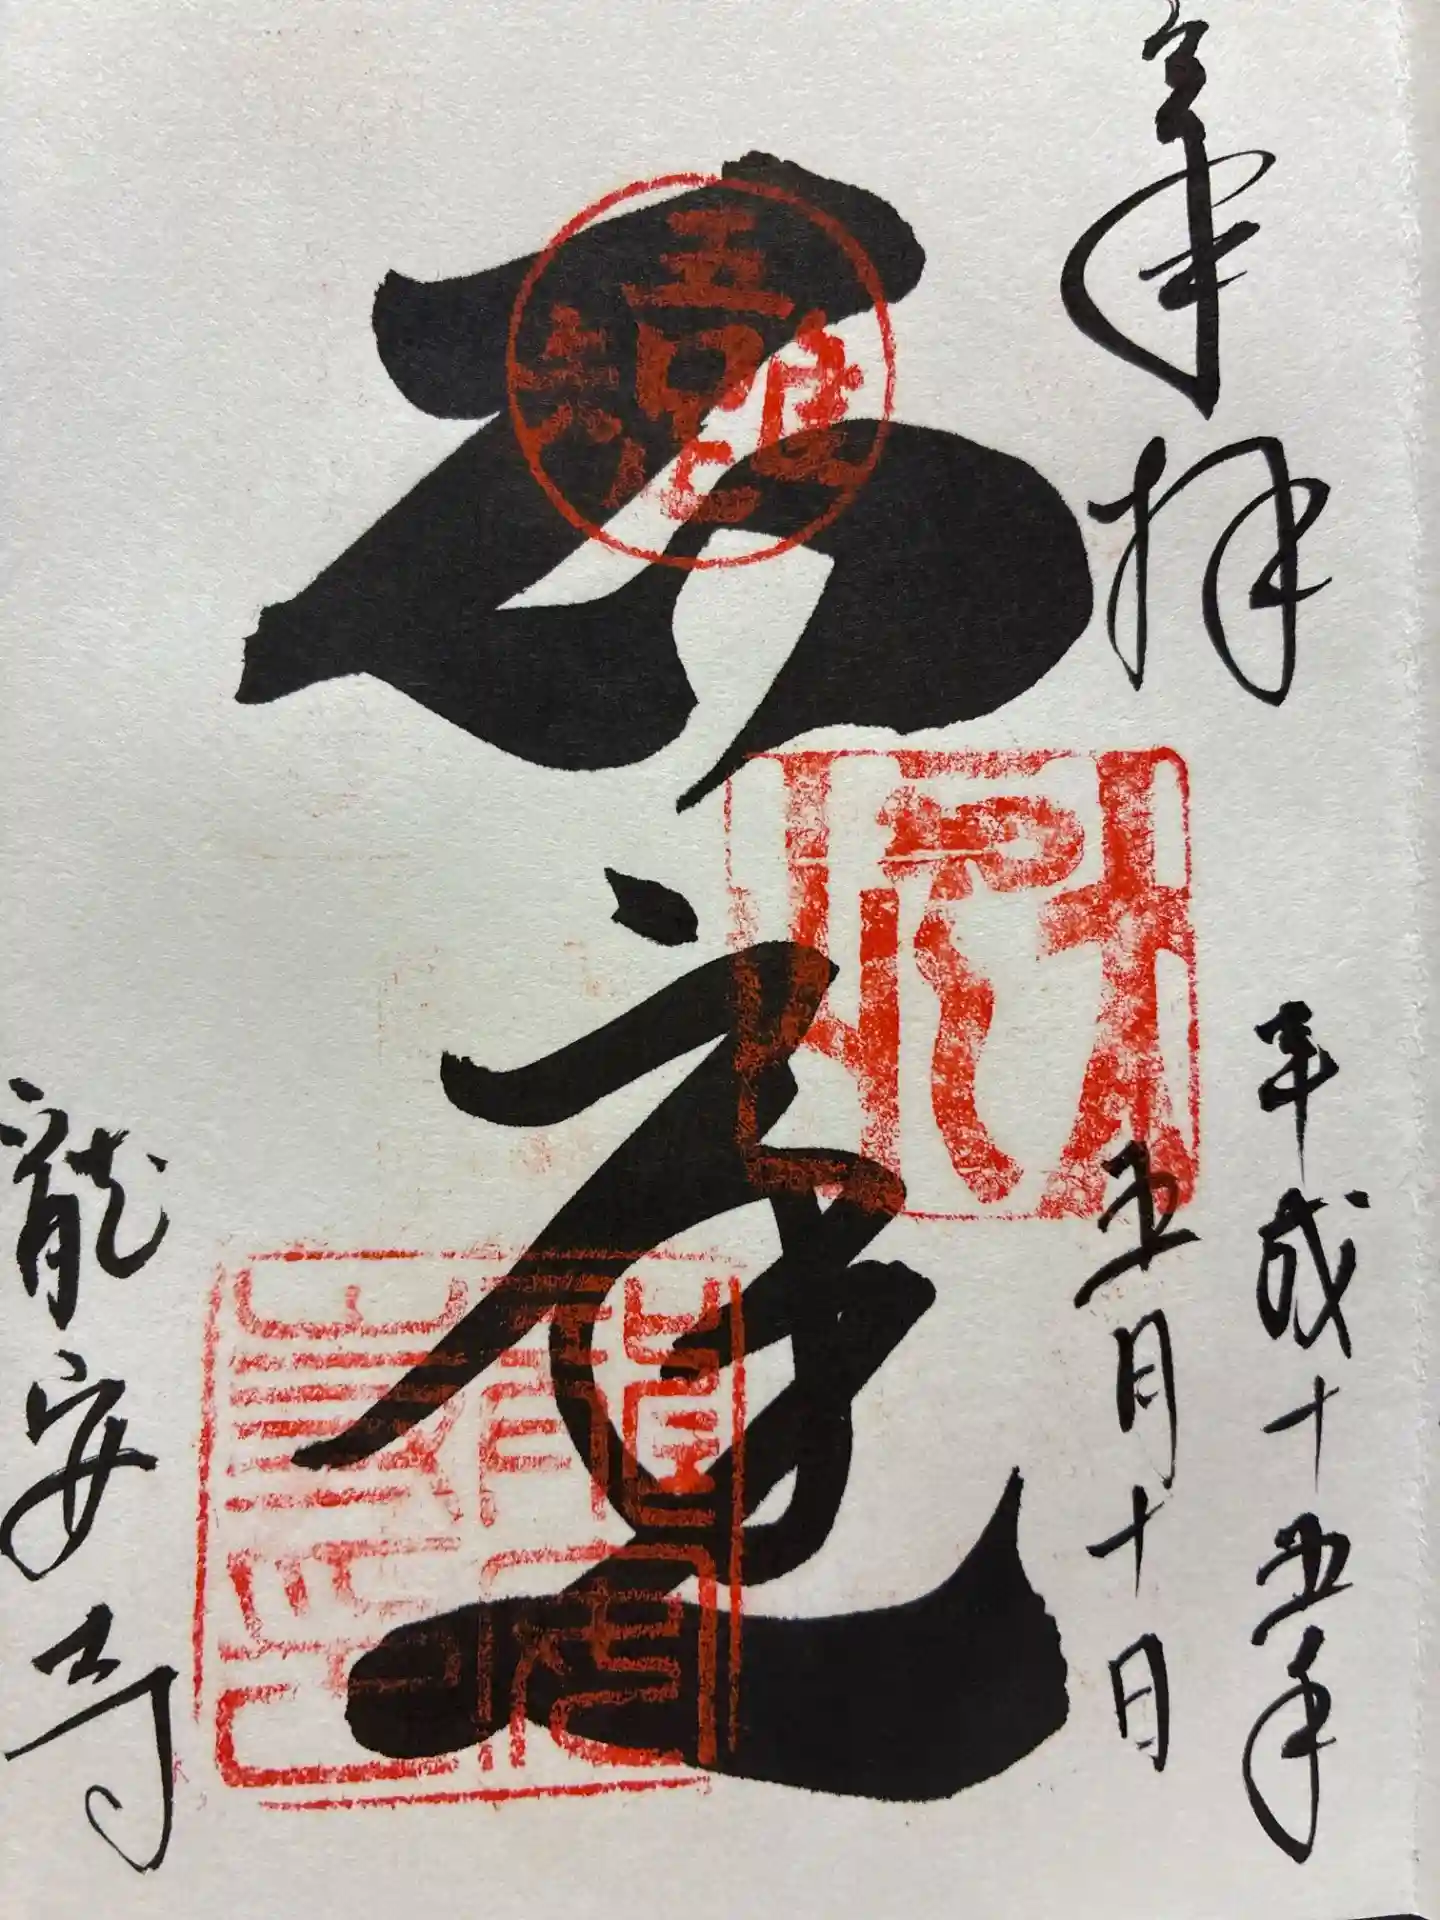 奉拝
平成十五年
五月十日
石庭
吾唯足知
龍安寺